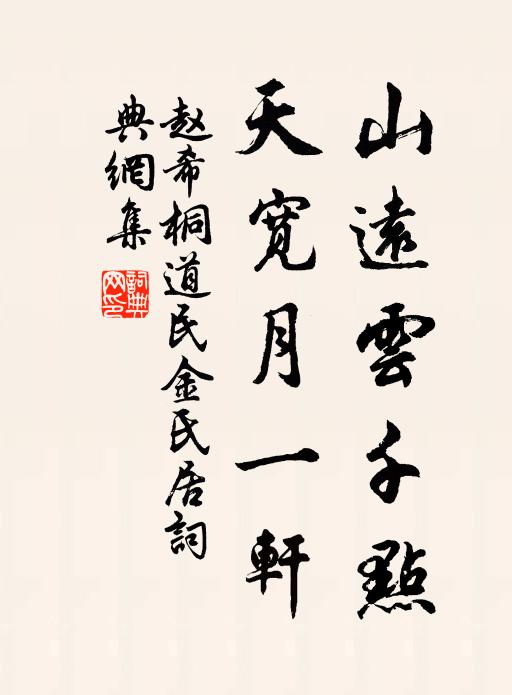 山遠雲千點
天寬月一軒
赵希桐道民金氏居詞
典網集
詞典
网印